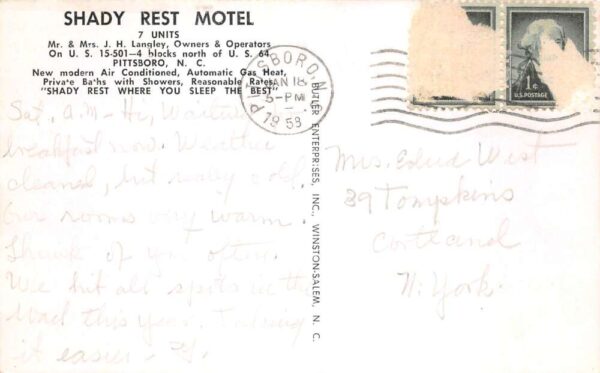 SHADY REST MOTEL
7 UNITS
Mr. & Mrs. J. H. Langley, Owners & Operators
On U. S. 15-501—4 blocks north of U. S. 64
PITTSBORO, N. C.
New modern Air Conditioned, Automatic Gas Heat,
Private Baths with Showers, Reasonable Rates
"SHADY REST WHERE YOU SLEEP THE BEST"
PITTSBORO, N.C.
JAN 18
5-PM
1958
1¢
U.S. POSTAGE
BUTLER ENTERPRISES, INC., WINSTON-SALEM, N. C.
Sat. A.M - Hi, Waiting
breakfast now. Weather
cleared, but really cold.
Our rooms very warm.
Think of you often.
We hit all spots in the
road this year. Taking
it easier -
Mrs. Edna West
39 Tompkins
Cortland
N. York